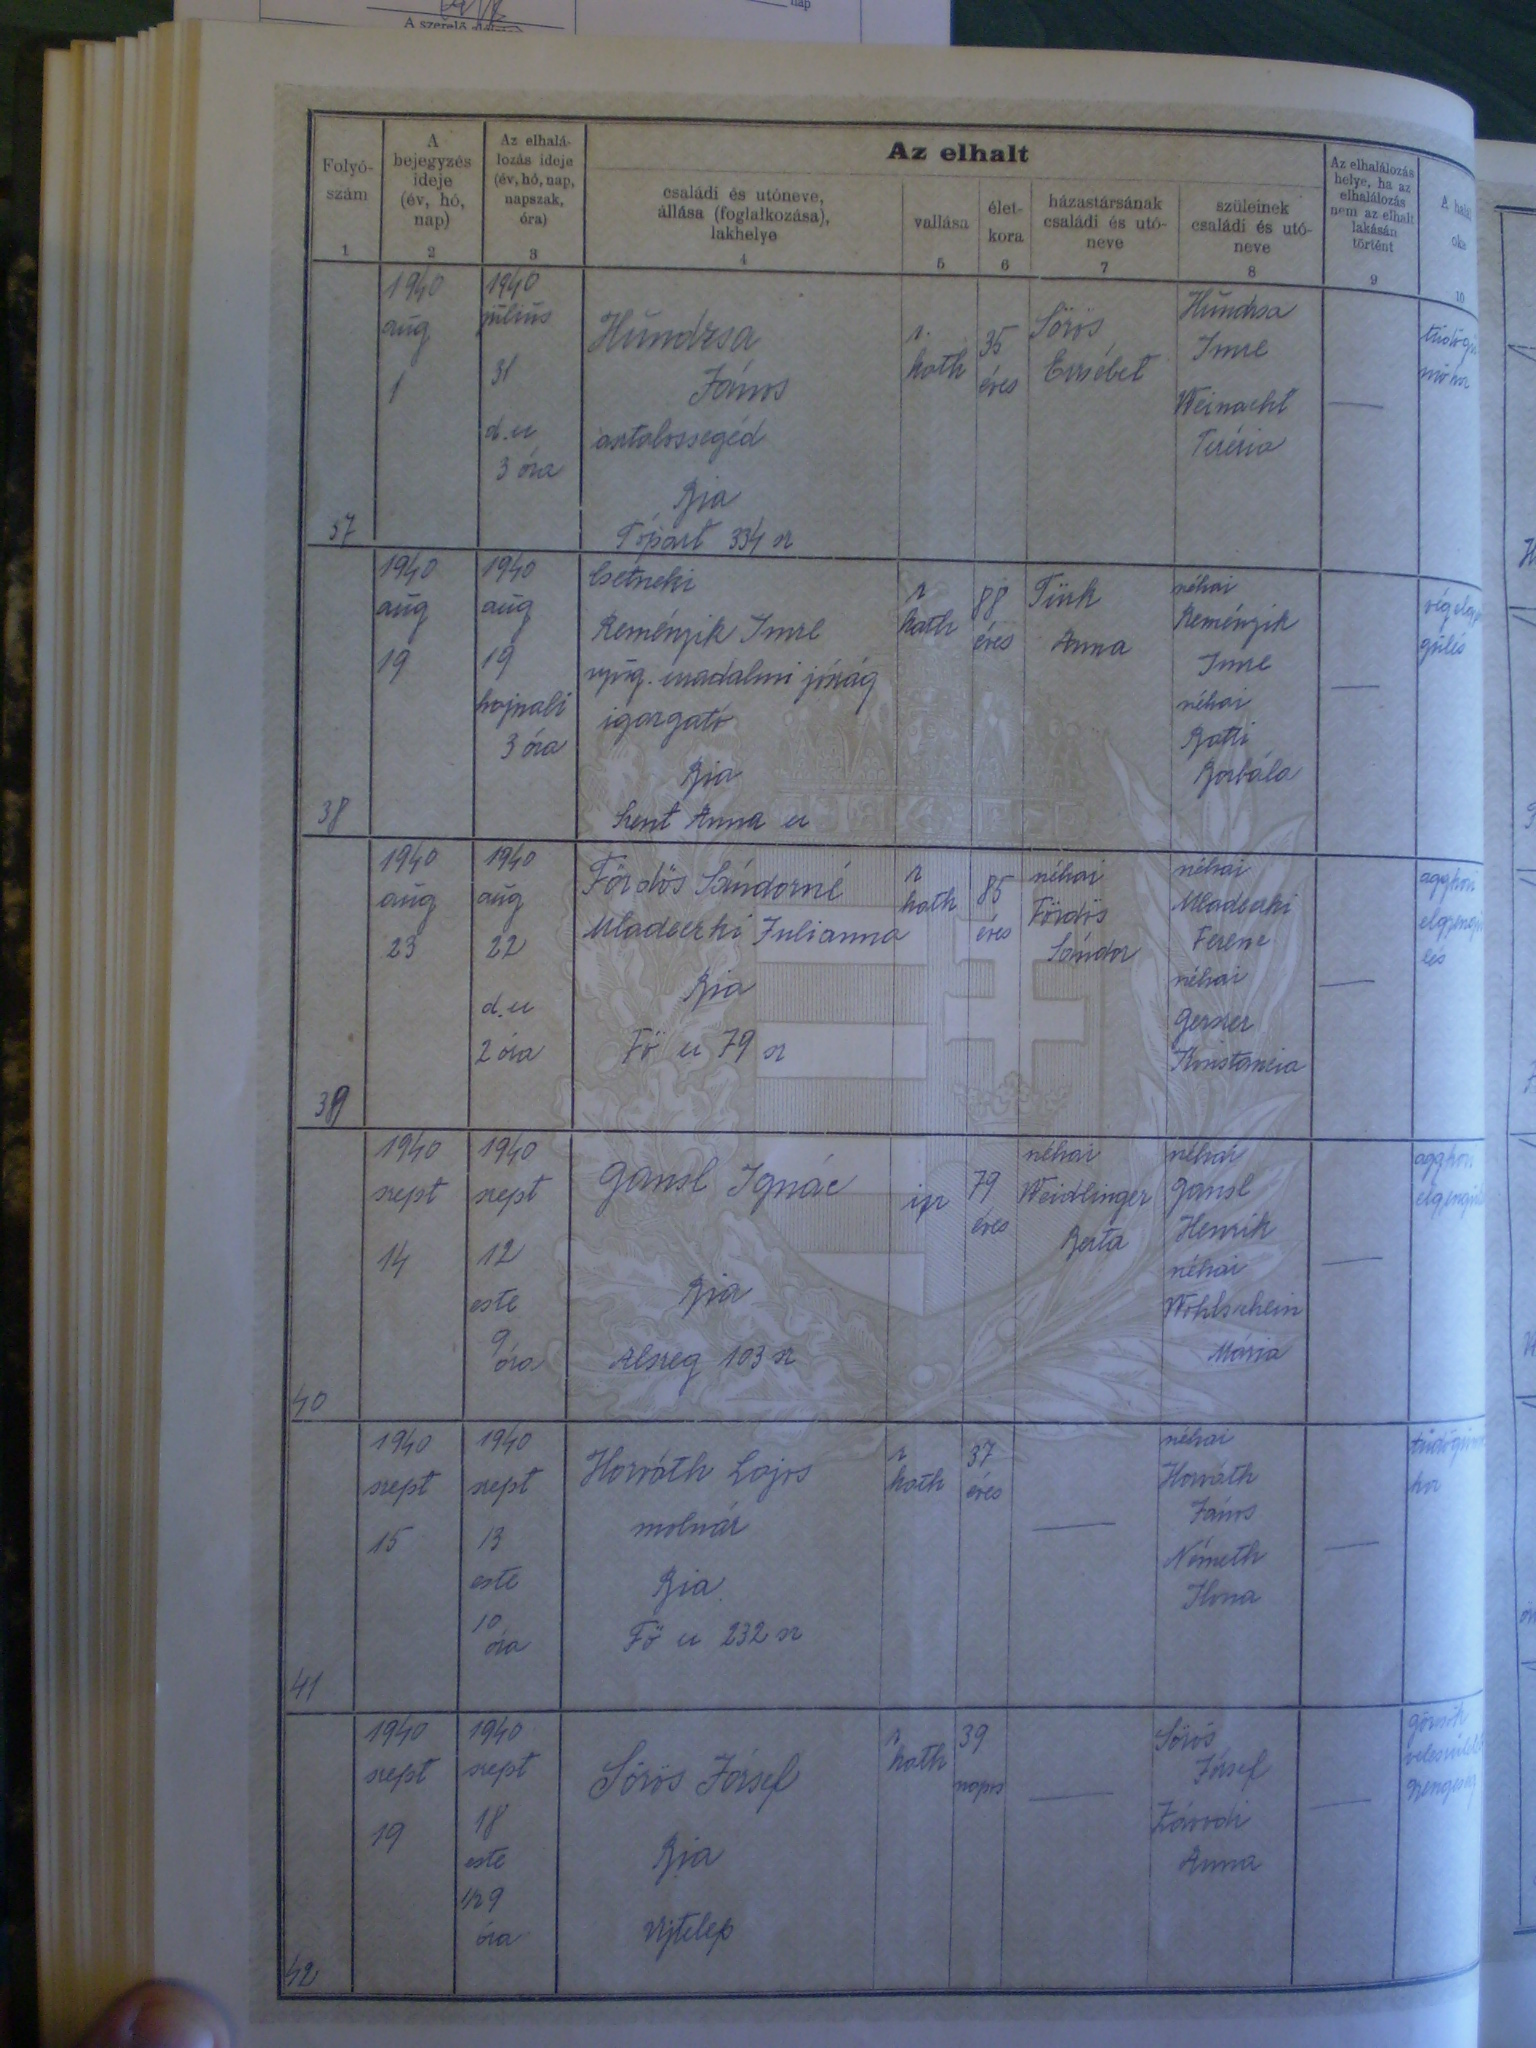 A szerelő aláírása
nap
Az elhalt
Folyó-
szám
A
bejegyzés
ideje
(év, hó,
nap)
Az elhalá-
lozás ideje
(év, hó, nap,
napszak,
óra)
családi és utóneve,
állása (foglalkozása),
lakhelye
vallása
élet-
kora
házastársának
családi és utó-
neve
szüleinek
családi és utó-
neve
Az elhalálozás
helye, ha az
elhalálozás
nem az elhalt
lakásán
történt
A halál
oka
1 2 3 4 5 6 7 8 9 10
37
1940
aug
1
1940
július
31
d.u
3 óra
Hundzsa
János
asztalossegéd
Bia
Tópart 334 sz
r.
kath
35
éves
Sörös
Erzsébet
Hundzsa
Imre
Weinacht
Terézia
—
38
1940
aug
19
1940
aug
19
hajnali
3 óra
Csetneki
Reményik Imre
nyug. uradalmi jószág
igazgató
Bia
Szent Anna u
r
kath
88
éves
Türk
Anna
néhai
Reményik
Imre
néhai
Botti
Borbála
—
végelgyen
gülés
39
1940
aug
23
1940
aug
22
d.u
2 óra
Fördös Sándorné
Mladeczki Julianna
Bia
Fő u 79 sz
r
kath
85
éves
néhai
Fördös
Sándor
néhai
Mladeczki
Ferenc
néhai
Gerszer
Konstancia
—
aggkori
elgyengü
lés
40
1940
szept
14
1940
szept
12
este
9
óra
Gansl Ignác
Bia
Alszeg 103 sz
izr
79
éves
néhai
Weidlinger
Berta
néhai
Gansl
Henrik
néhai
Wohlschein
Mária
—
aggkori
elgyengül
41
1940
szept
15
1940
szept
13
este
10
óra
Horváth Lajos
molnár
Bia
Fő u 232 sz
r
kath
37
éves
—
néhai
Horváth
János
Németh
Ilona
—
tüdőgümő
kor
42
1940
szept
19
1940
szept
18
este
1/2 9
óra
Sörös József
Bia
Ujtelep
r
kath
39
napos
—
Sörös
József
Závodi
Anna
—
görcsök
veleszületett
gyengeség